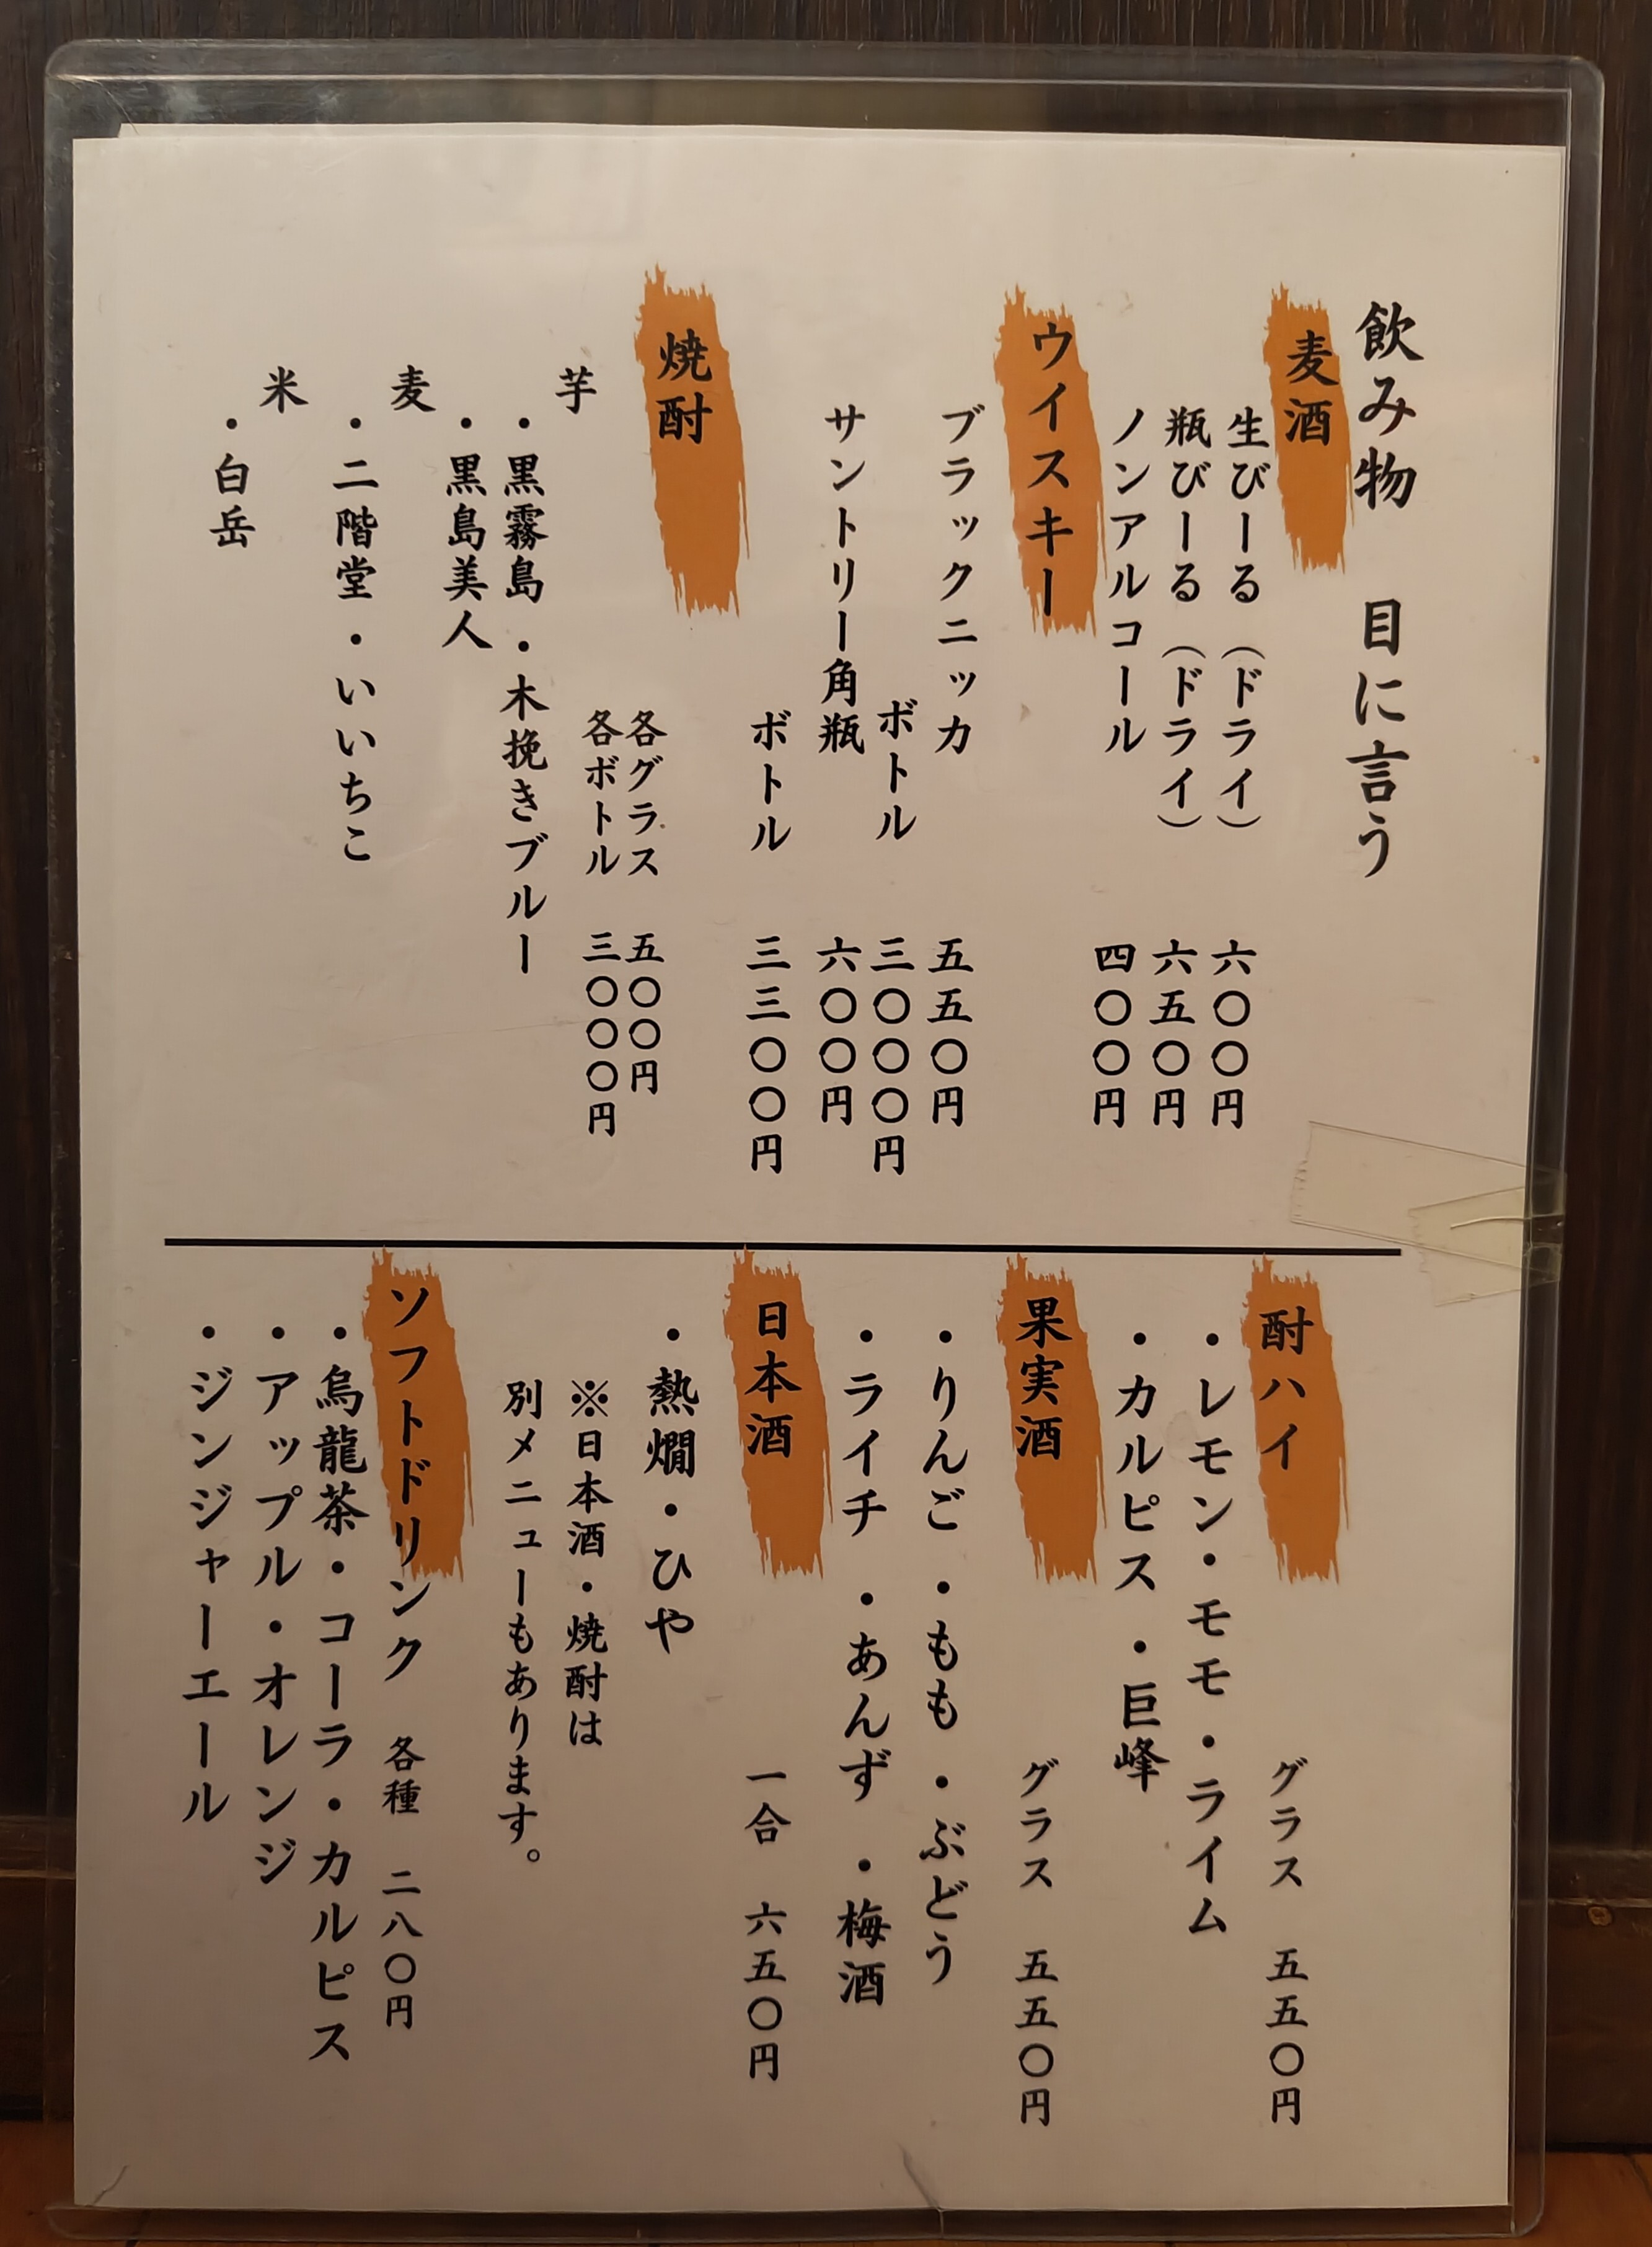 飲み物　目に言う
麦酒
生びーる（ドライ）　六〇〇円
瓶びーる（ドライ）　六五〇円
ノンアルコール　四〇〇円
ウイスキー
ブラックニッカ　五五〇円
ボトル　三〇〇〇円
サントリー角瓶　六〇〇円
ボトル　三三〇〇円
焼酎
各グラス　五〇〇円
各ボトル　三〇〇〇円
芋
・黒霧島　・木挽きブルー
・黒島美人
麦
・二階堂・いいちこ
米
・白岳
酎ハイ　グラス　五五〇円
・レモン・モモ・ライム
・カルピス　・巨峰
果実酒　グラス　五五〇円
・りんご　・もも　・ぶどう
・ライチ　・あんず　・梅酒
日本酒　一合　六五〇円
・熱燗・ひや
※日本酒・焼酎は
別メニューもあります。
ソフトドリンク　各種　二八〇円
・烏龍茶・コーラ・カルピス
・アップル・オレンジ
・ジンジャーエール